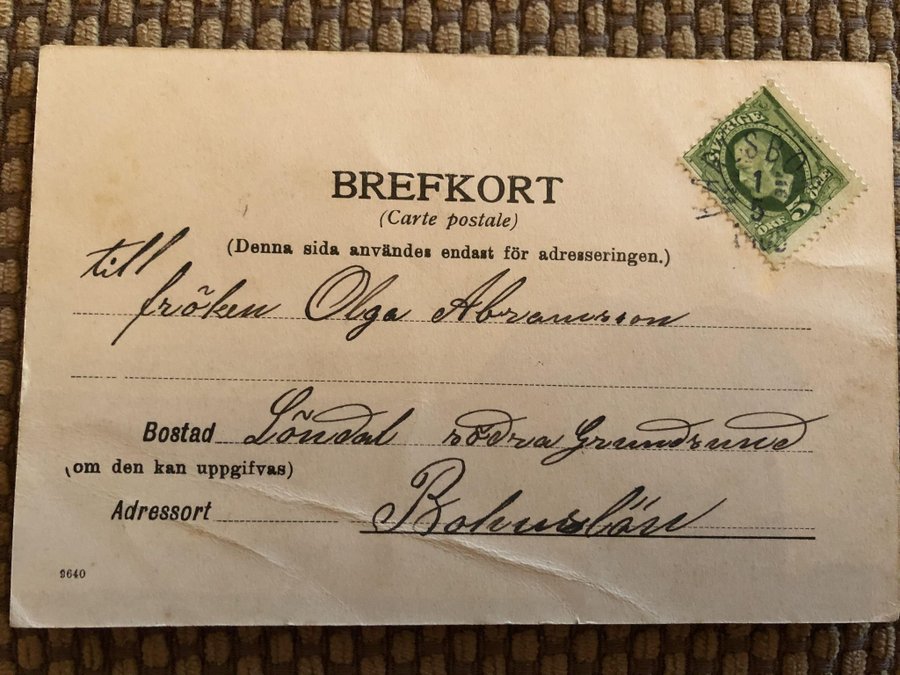 BREFKORT
(Carte postale)
(Denna sida användes endast för adresseringen.)
SVERIGE
5
till
fröken Olga Abramsson
Bostad Löndal södra Grundsund
(om den kan uppgifvas)
Adressort Bohuslän
9640